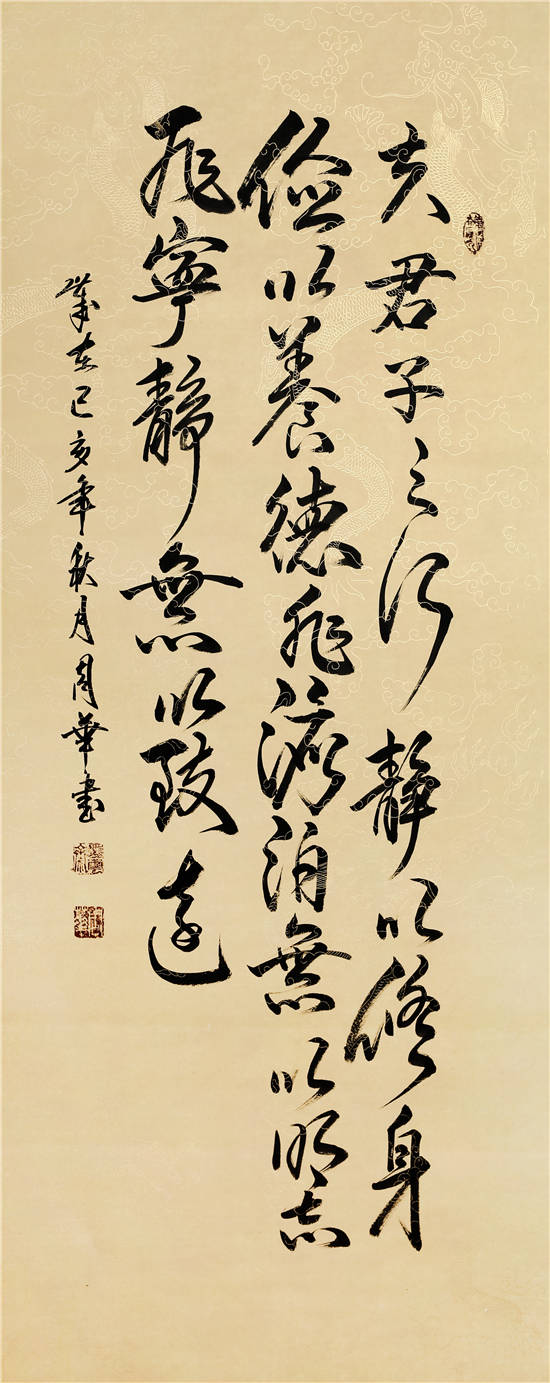 夫君子之行静以修身
俭以养德非澹泊无以明志
非宁静无以致远
岁在己亥年秋月周华书